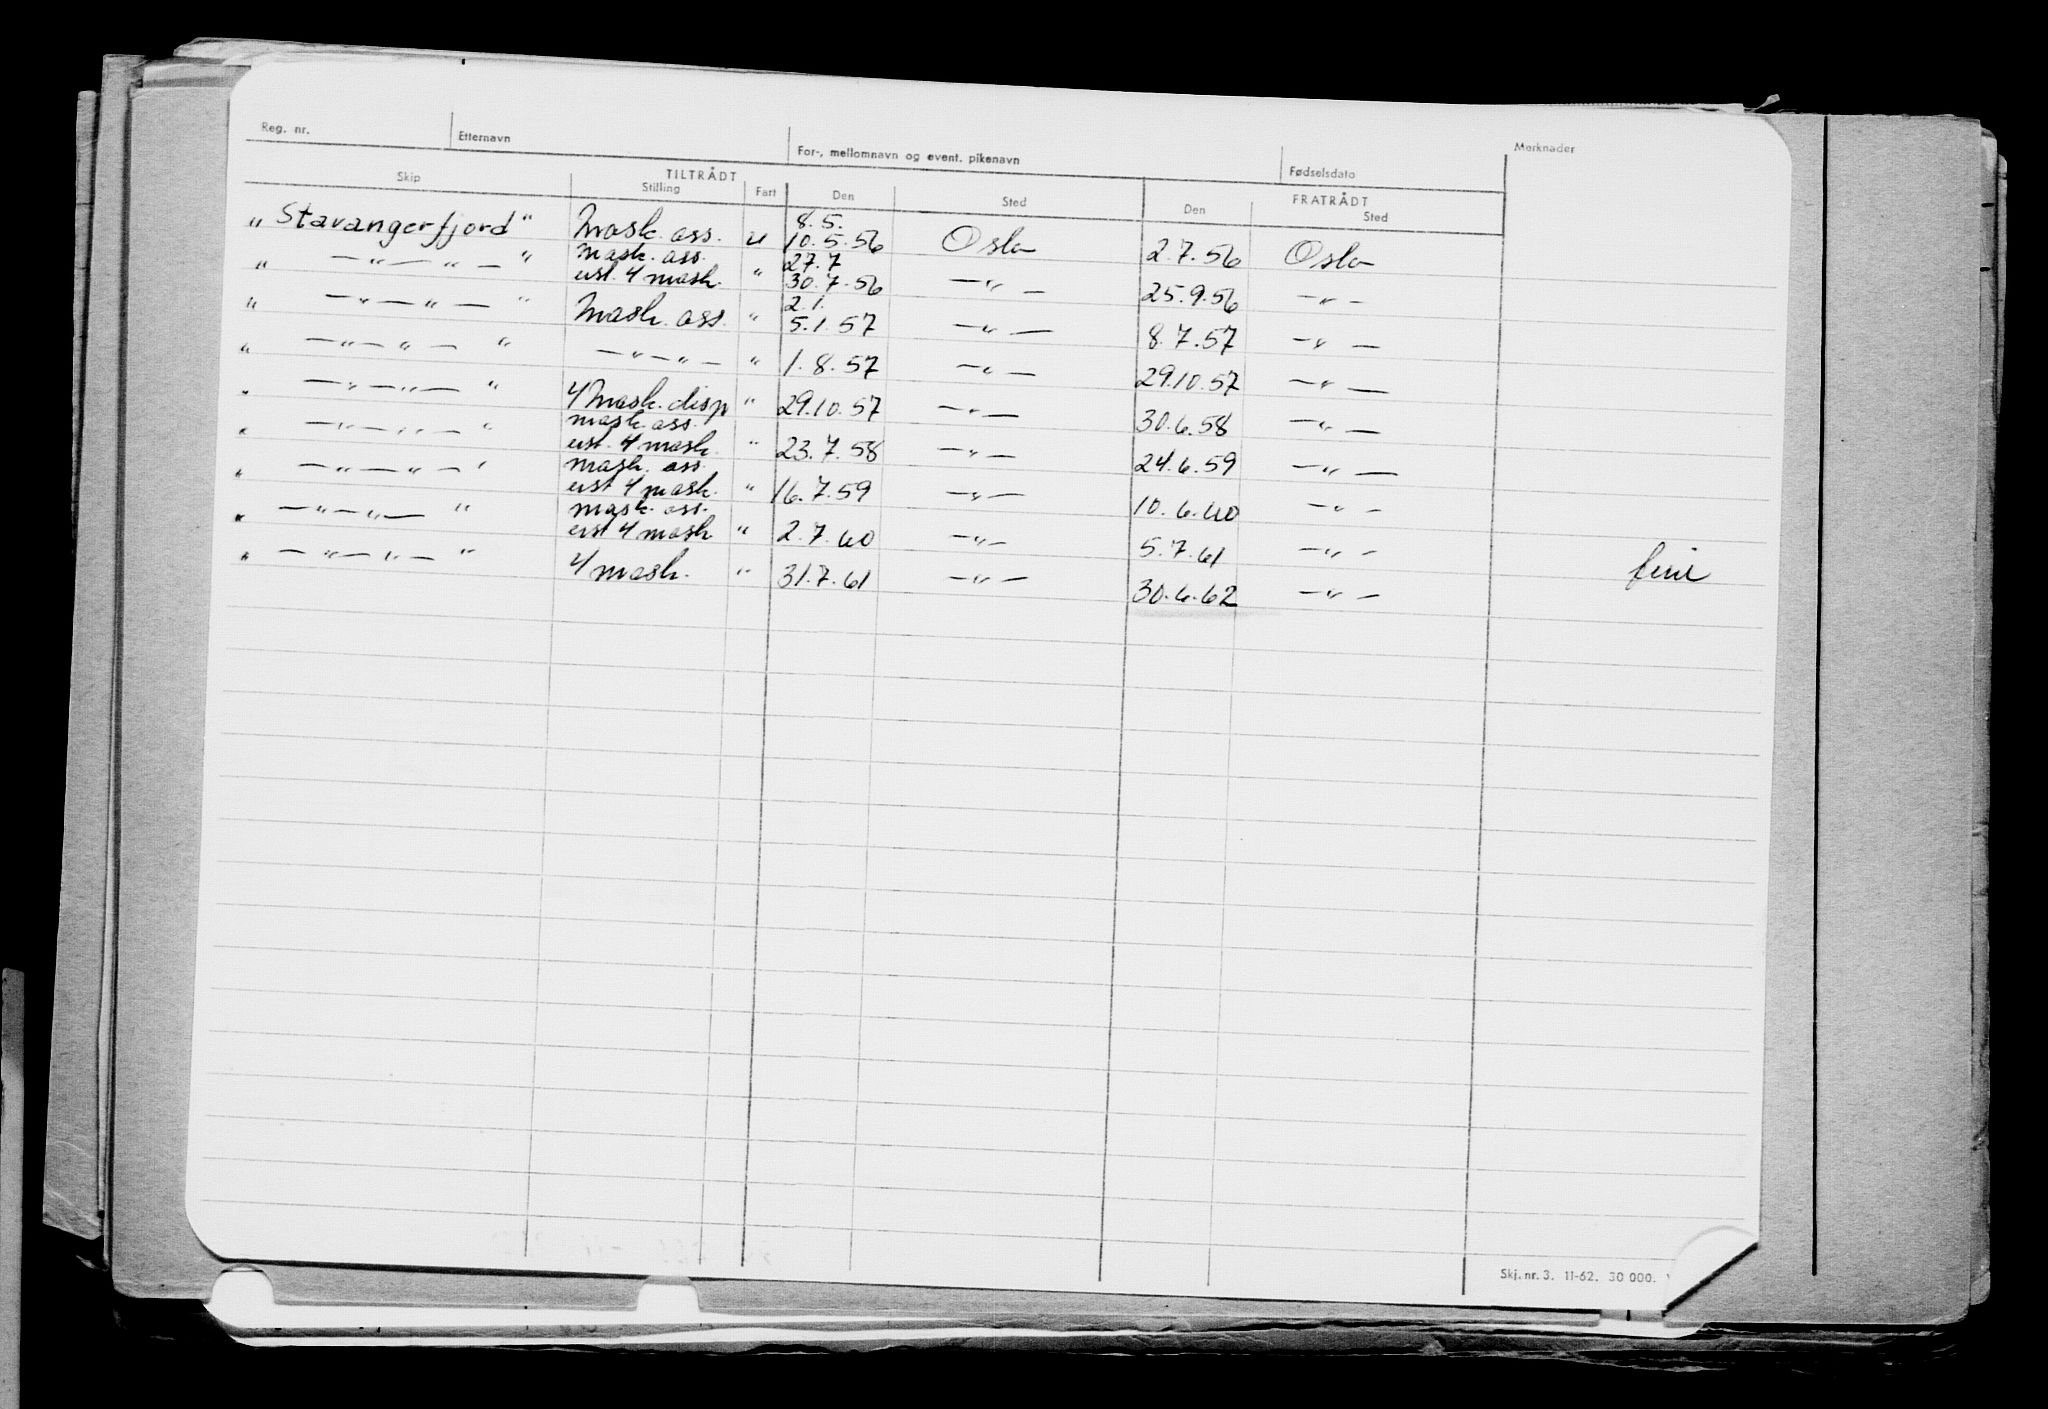 Reg. nr. Etternavn For-, mellomnavn og event. pikenavn Fødselsdato Merknader
TILTRÅDT FRATRÅDT
Skip Stilling Fart Den Sted Den Sted
8.5.
"Stavangerfjord" Mask. ass. u 10.5.56 Oslo 2.7.56 Oslo
mask. ass. 27.7
" — " — " — " eist. 4 mask. " 30.7.56 — " — 25.9.56 — " —
2.1.
" — " — " — " Mask. ass. " 5.1.57 — " — 8.7.57 — " —
" — " — " — " — " — " — " 1.8.57 — " — 29.10.57 — " —
" — " — " — " 4 Mask. disp " 29.10.57 — " — 30.6.58 — " —
mask. ass.
" — " — " — " eist. 4 mask. " 23.7.58 — " — 24.6.59 — " —
mask. ass.
" — " — " — " eist 4 mask. " 16.7.59 — " — 10.6.60 — " —
mask. ass.
" — " — " — " eist 4 mask " 2.7.60 — " — 5.7.61 — " —
" — " — " — " 4 mask. " 31.7.61 — " — 30.6.62 — " — ferie
Skj. nr. 3. 11-62. 30 000.